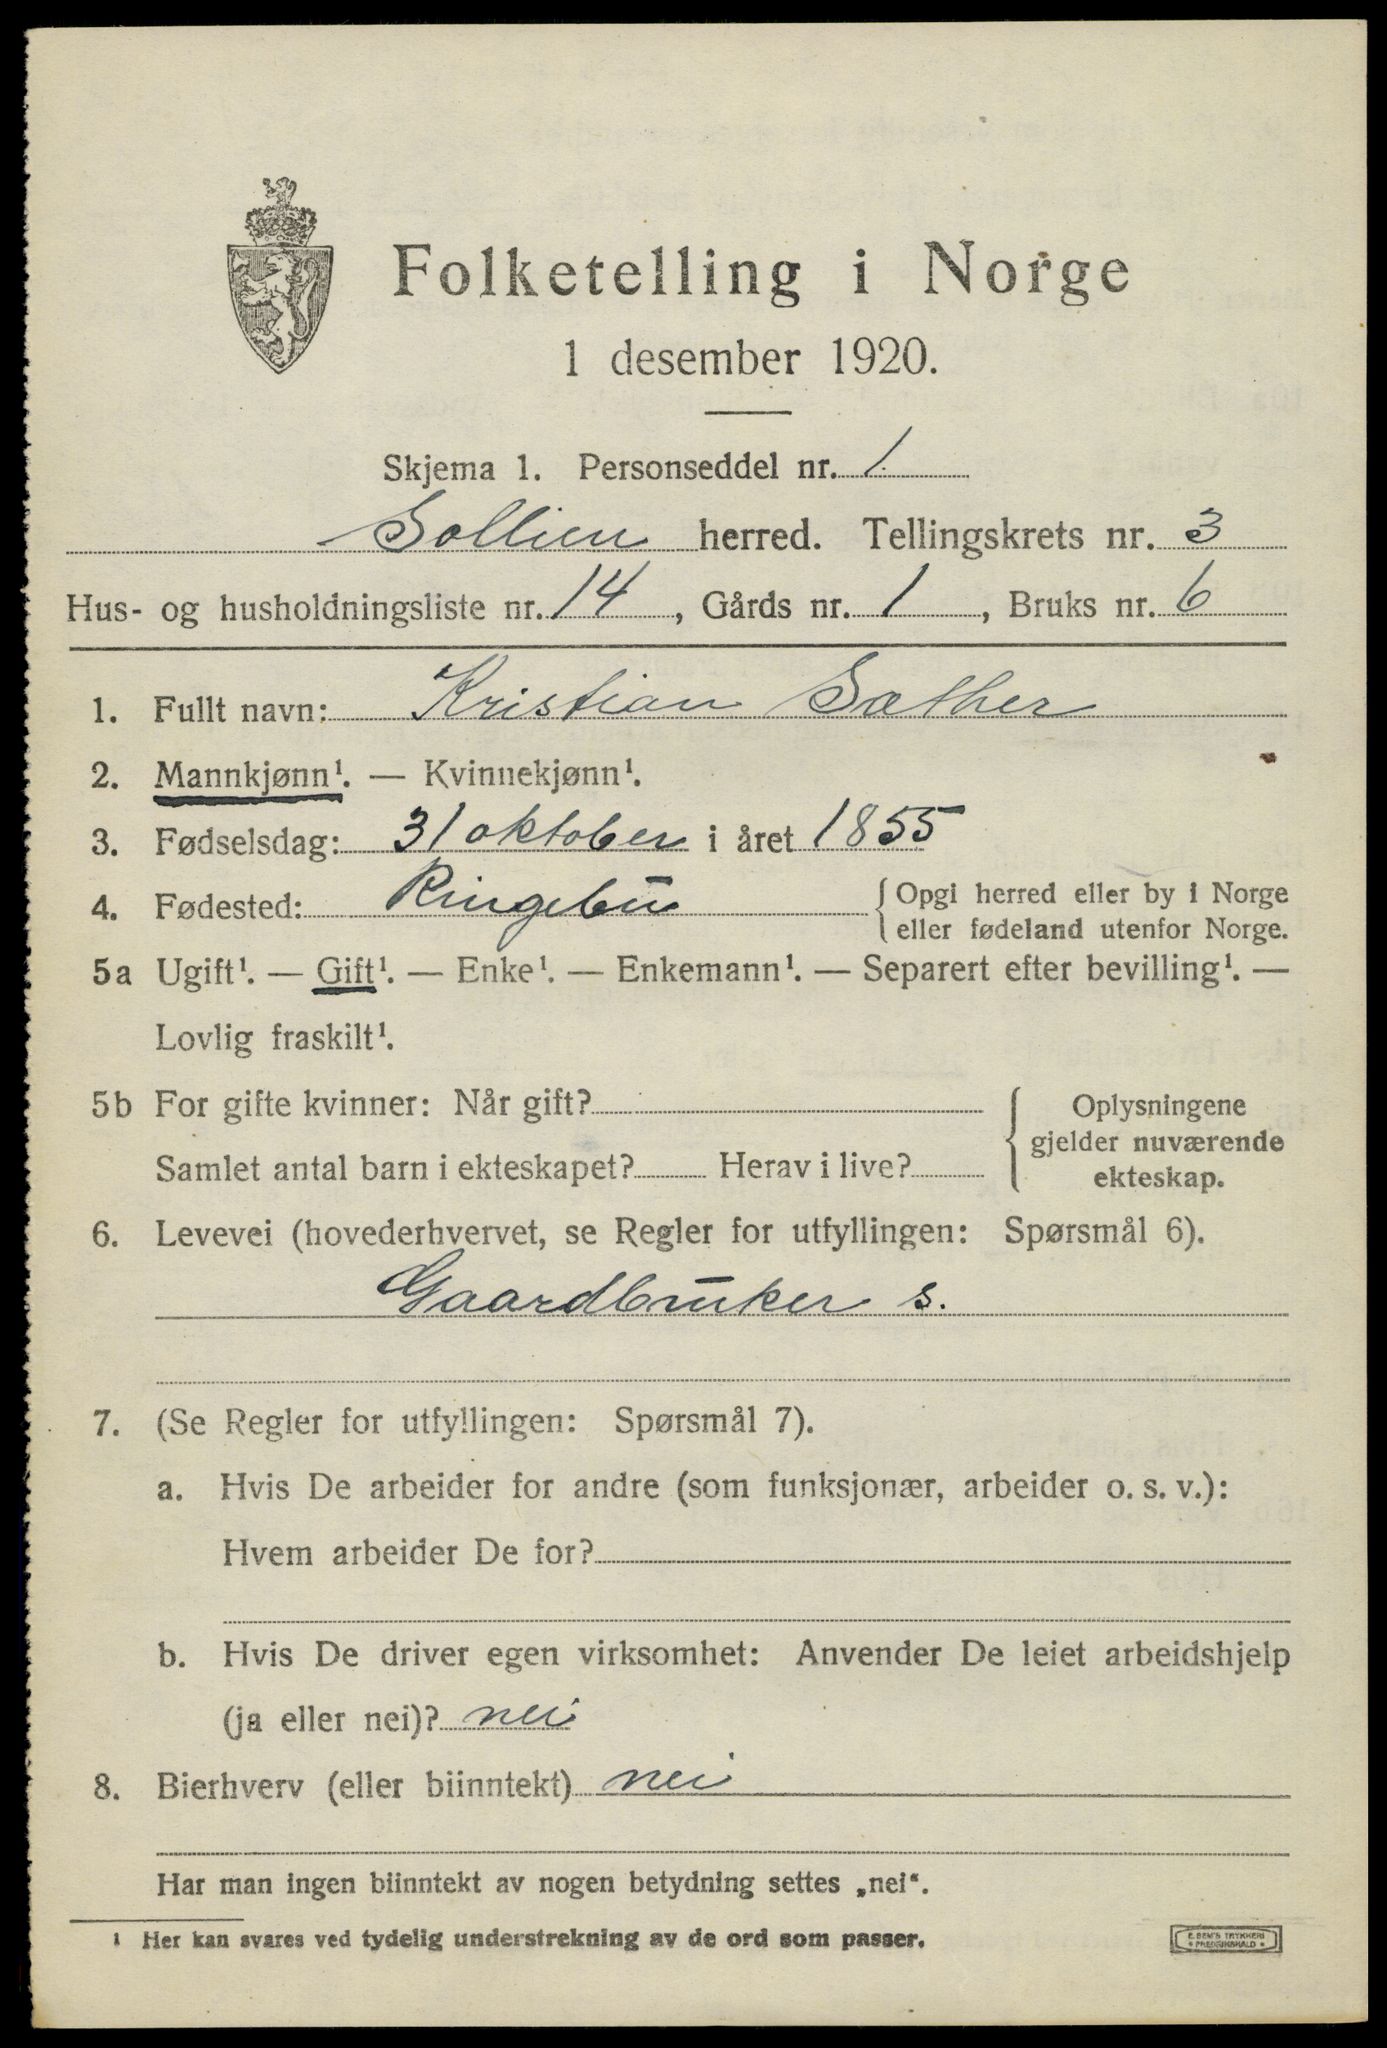 Folketelling i Norge
1 desember 1920.
Skjema 1. Personseddel nr. 1.
Sollien herred. Tellingskrets nr. 3
Hus- og husholdningsliste nr. 14, Gårds nr. 1, Bruks nr. 6
1. Fullt navn: Kristian Sæther
2. Mannkjønn¹. — Kvinnekjønn¹.
3. Fødselsdag: 31 oktober i året 1855
4. Fødested: Ringebu { Opgi herred eller by i Norge
eller fødeland utenfor Norge.
5a Ugift¹. — Gift¹. — Enke¹. — Enkemann¹. — Separert efter bevilling¹. —
Lovlig fraskilt¹.
5b For gifte kvinner: Når gift? { Oplysningene
gjelder nuværende
Samlet antal barn i ekteskapet? Herav i live? ekteskap.
6. Levevei (hovederhvervet, se Regler for utfyllingen: Spørsmål 6).
Gaardbruker s.
7. (Se Regler for utfyllingen: Spørsmål 7).
a. Hvis De arbeider for andre (som funksjonær, arbeider o. s. v.):
Hvem arbeider De for?
b. Hvis De driver egen virksomhet: Anvender De leiet arbeidshjelp
(ja eller nei)? nei
8. Bierhverv (eller biinntekt) nei
Har man ingen biinntekt av nogen betydning settes „nei“.
¹ Her kan svares ved tydelig understrekning av de ord som passer.
E. SEM'S TRYKKERI
• FREDRIKSHALD •